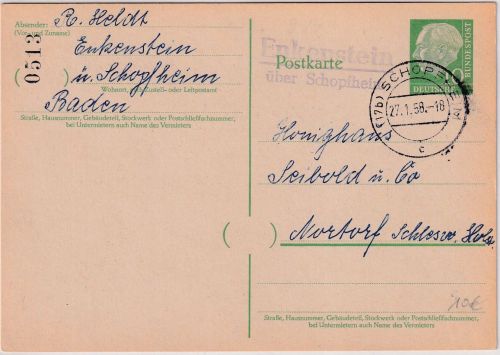 Absender:
(Vor- und Zuname)
R. Heldt
Enkenstein
ü. Schopfheim
Wohnort, auch Zustell- oder Leitpostamt
Baden
Straße, Hausnummer, Gebäudeteil, Stockwerk oder Postschließfachnummer,
bei Untermietern auch Name des Vermieters
0513
Enkenstein
über Schopfheim
Postkarte
DEUTSCHE
BUNDESPOST
(17b) SCHOPFHEIM
27.1.58.-18
c
Honighaus
Seibold u. Co
( ) Nortorf Schlesw. Holst.
10€
Straße, Hausnummer, Gebäudeteil, Stockwerk oder Postschließfachnummer,
bei Untermietern auch Name des Vermieters